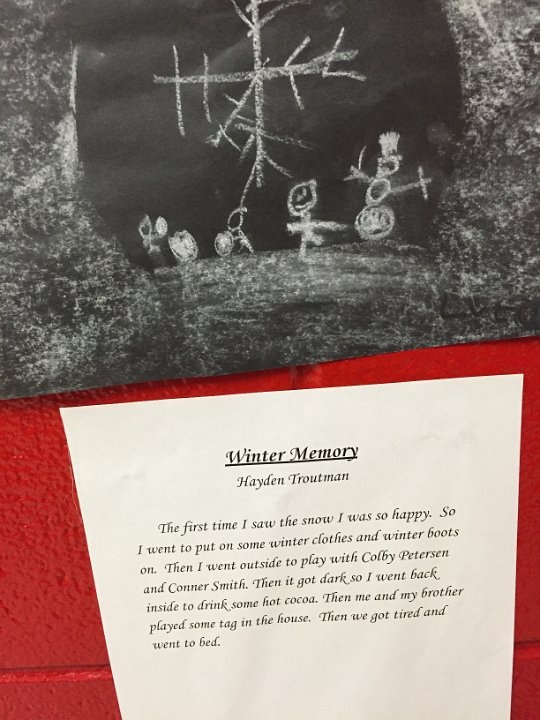 Winter Memory
Hayden Troutman
The first time I saw the snow I was so happy. So
I went to put on some winter clothes and winter boots
on. Then I went outside to play with Colby Petersen
and Conner Smith. Then it got dark so I went back
inside to drink some hot cocoa. Then me and my brother
played some tag in the house. Then we got tired and
went to bed.